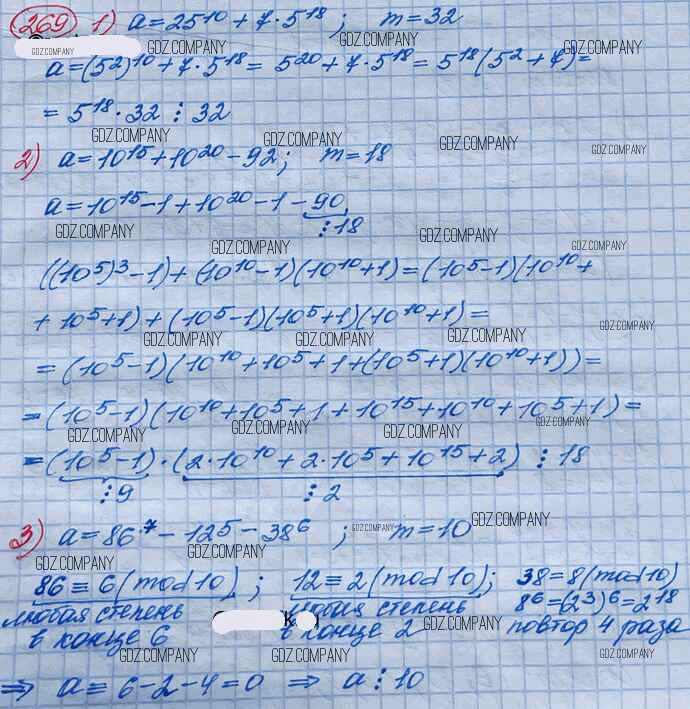 269 1) a = 25¹⁰ + 7·5¹⁸ ; m = 32
GDZ.COMPANY GDZ.COMPANY GDZ.COMPANY GDZ.COMPANY
a = (5²)¹⁰ + 7·5¹⁸ = 5²⁰ + 7·5¹⁸ = 5¹⁸(5² + 7) =
= 5¹⁸·32 ⋮ 32
GDZ.COMPANY GDZ.COMPANY GDZ.COMPANY GDZ.COMPANY
2) a = 10¹⁵ + 10²⁰ – 92 ; m = 18
a = 10¹⁵ – 1 + 10²⁰ – 1 – 90
⋮ 18
GDZ.COMPANY GDZ.COMPANY GDZ.COMPANY GDZ.COMPANY
((10⁵)³ – 1) + (10¹⁰ – 1)(10¹⁰ + 1) = (10⁵ – 1)(10¹⁰ +
+ 10⁵ + 1) + (10⁵ – 1)(10⁵ + 1)(10¹⁰ + 1) =
GDZ.COMPANY GDZ.COMPANY GDZ.COMPANY GDZ.COMPANY
= (10⁵ – 1)(10¹⁰ + 10⁵ + 1 + (10⁵ + 1)(10¹⁰ + 1)) =
= (10⁵ – 1)(10¹⁰ + 10⁵ + 1 + 10¹⁵ + 10¹⁰ + 10⁵ + 1) =
GDZ.COMPANY GDZ.COMPANY GDZ.COMPANY GDZ.COMPANY
= (10⁵ – 1)·(2·10¹⁰ + 2·10⁵ + 10¹⁵ + 2) ⋮ 18
⋮ 9 ⋮ 2
3) a = 86⁷ – 12⁵ – 38⁶ ; m = 10
GDZ.COMPANY GDZ.COMPANY GDZ.COMPANY GDZ.COMPANY
86 ≡ 6 (mod 10) ; 12 ≡ 2 (mod 10); 38 = 8 (mod 10)
любая степень любая степень 8⁶ = (2³)⁶ = 2¹⁸
в конце 6 в конце 2 повтор 4 раза
GDZ.COMPANY
GDZ.COMPANY GDZ.COMPANY GDZ.COMPANY
⇒ a ≡ 6 – 2 – 4 = 0 ⇒ a ⋮ 10